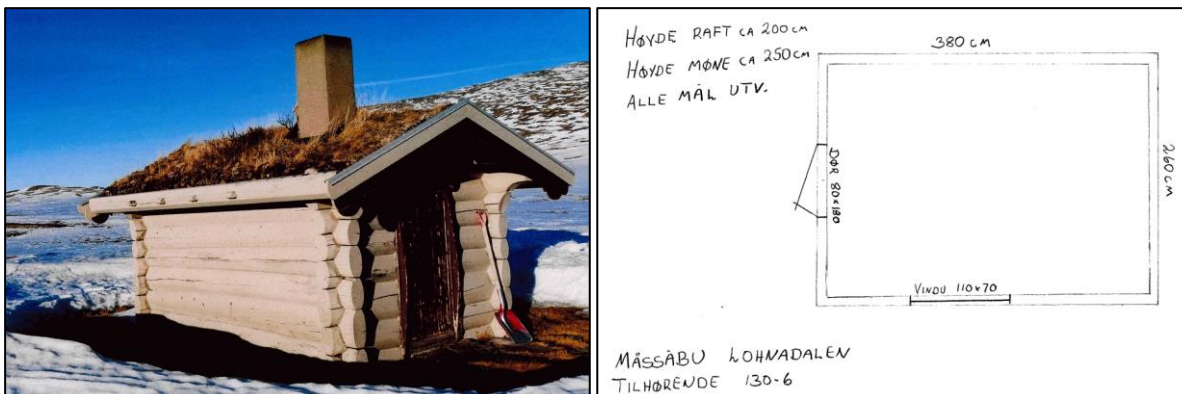 HØYDE RAFT CA 200 cm
HØYDE MØNE CA 250 cm
ALLE MÅL UTV.
380 cm
260 cm
DØR 80x180
VINDU 110x70
MÅSSÅBU LOHNADALEN
TILHØRENDE 130-6